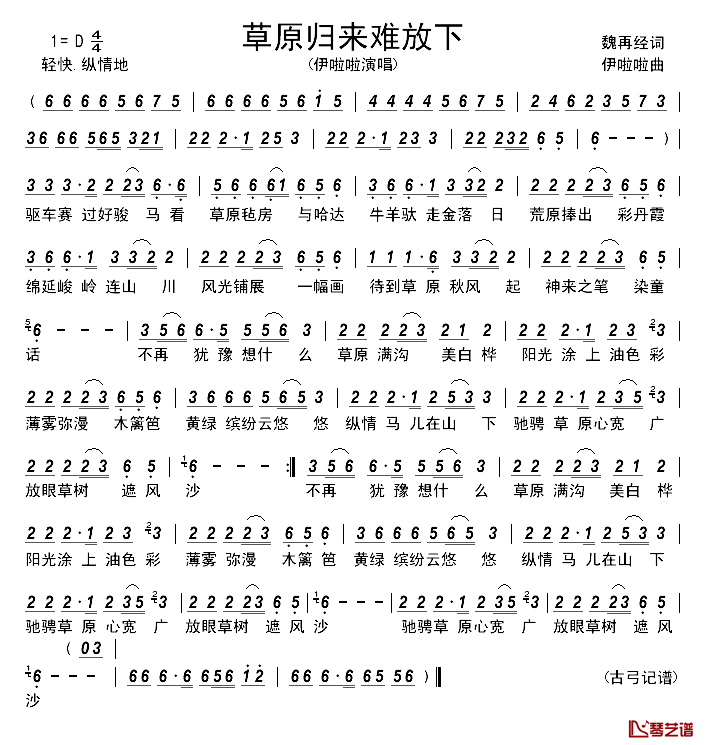 草原归来难放下
1= D 4/4
轻快.纵情地
(伊啦啦演唱)
魏再经词
伊啦啦曲
( 6 6 6 6 5 6 7 5 | 6 6 6 6 5 6 i 5 | 4 4 4 4 5 6 7 5 | 2 4 6 2 3 5 7 3 |
3 6 6 6 5 6 5 3 2 1 | 2 2 2 · 1 2 5 3 | 2 2 2 · 1 2 3 3 | 2 2 2 3 2 6 5 | 6 - - ) |
3 3 3 · 2 2 2 3 6 · 6 | 5 6 6 6 1 6 5 6 | 6 6 6 · 1 3 3 2 2 | 2 2 2 2 3 6 5 6 |
驱车赛 过好骏 马 看 草原毡房 与哈达 牛羊驮 走金落 日 荒原捧出 彩丹霞
3 6 6 · 1 3 3 2 2 | 2 2 2 2 3 6 5 6 | 1 1 1 · 6 2 3 3 2 | 2 2 2 2 3 6 5 |
绵延峻 岭 连山 川 风光铺展 一幅画 待到草 原 秋风 起 神来之笔 染童
6 - - - | 3 5 6 6 · 5 3 5 6 3 | 2 2 2 2 3 2 1 2 | 2 2 2 · 1 2 3 3 |
话 不再 犹 豫 想什 么 草原 满沟 美白 桦 阳光 涂 上 油色 彩
2 2 2 2 3 6 5 6 | 3 6 6 6 5 6 5 3 | 2 2 2 · 1 2 5 3 3 | 2 2 2 · 1 2 3 5 3 |
薄雾弥漫 木篱笆 黄绿 缤纷云悠 悠 纵情 马 儿在山 下 驰骋 草 原心宽 广
2 2 2 2 3 6 5 | 6 - - :| 3 5 6 6 · 5 3 5 6 3 | 2 2 2 2 3 2 1 2 |
放眼草树 遮风 沙 不再 犹 豫 想什 么 草原 满沟 美白 桦
2 2 2 · 1 2 3 3 | 2 2 2 2 3 6 5 6 | 3 6 6 6 5 6 5 3 | 2 2 2 · 1 2 5 3 3 |
阳光涂 上 油色 彩 薄雾 弥漫 木篱 笆 黄绿 缤纷云悠 悠 纵情 马 儿在山 下
2 2 2 · 1 2 3 5 3 | 2 2 2 2 3 6 5 | 6 - - | 2 2 2 · 1 2 3 5 3 | 2 2 2 2 3 6 5 |
驰骋草 原 心宽 广 放眼草树 遮风 沙 驰骋草 原心宽 广 放眼草树 遮风
( 0 3
6 - - - | 6 6 6 · 6 6 5 6 | 6 6 6 5 6 i 2 | 6 6 6 5 6 6 ) ‖
沙
(古弓记谱)
琴艺谱